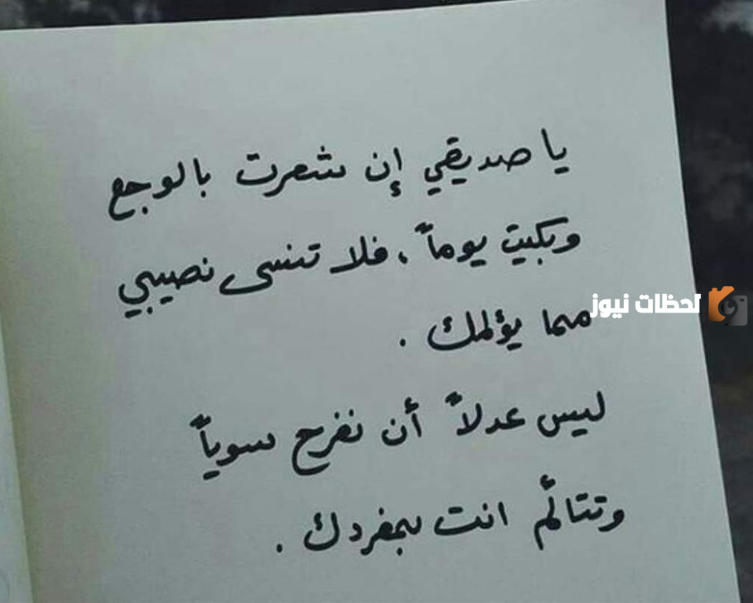 يا صديقي إن شعرت بالوجع
وبكيت يوماً ، فلا تنسى نصيبي
مما يؤلمك .
لحظات نيوز
ليس عدلاً أن نفرح سوياً
وتتألم انت بمفردك .